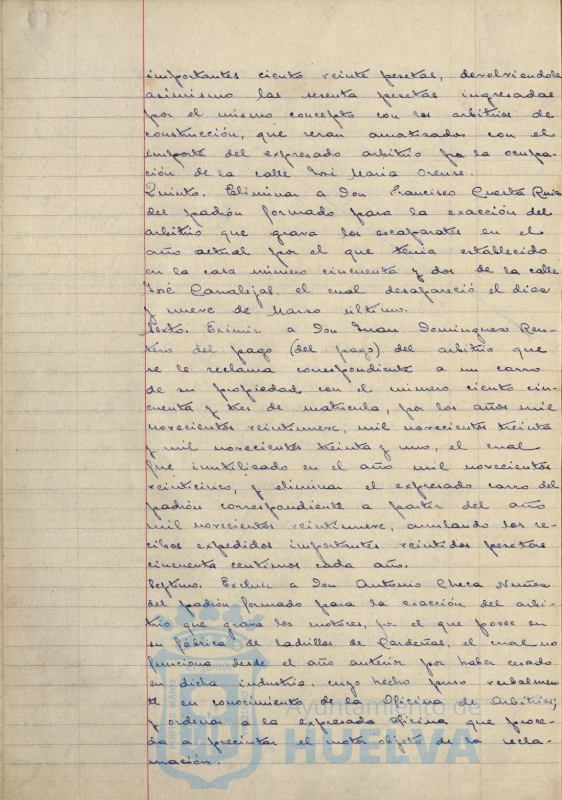 importantes ciento veinte pesetas, devolviendole
asimismo las sesenta pesetas ingresadas
por el mismo concepto con los arbitrios de
construcción, que seran amortizados con el
importe del expresado arbitrio pa la ocupa-
ción de la calle José María Orense.
Quinto. Eliminar a Don Francisco Cuesta Ruiz
del padrón formado para la exacción del
arbitrio que grava los escaparates en el
año actual por el que tenia establecido
en la casa número cincuenta y dos de la calle
José Canalejas, el cual desapareció el diez
y nueve de Marzo último.
Sexto. Eximir a Don Juan Dominguez Ren-
tero del pago (del pago) del arbitrio que
se le reclama correspondiente a un carro
de su propiedad con el número ciento cin-
cuenta y tres de matrícula, por los años mil
novecientos veintinueve, mil novecientos treinta
y mil novecientos treinta y uno, el cual
fue inutilizado en el año mil novecientos
veinticinco, y eliminar el expresado carro del
padrón correspondiente a partir del año
mil novecientos veintinueve, anulando los re-
cibos expedidos importantes veintidos pesetas
cincuenta centimos cada año.
Septimo. Excluir a Don Antonio Checa Nuñez
del padrón formado para la exacción del arbi-
trio que grava los motores, por el que posee en
su fábrica de ladrillos de Cardeñas, el cual no
funciona desde el año anterior por haber cesado
en dicha industria, cuyo hecho puso verbalmen-
te en conocimiento de la Oficina de Arbitrios;
y ordenar a la expresada oficina que proce-
da a precintar el motor objeto de la recla-
mación.
Ayuntamiento de
HUELVA